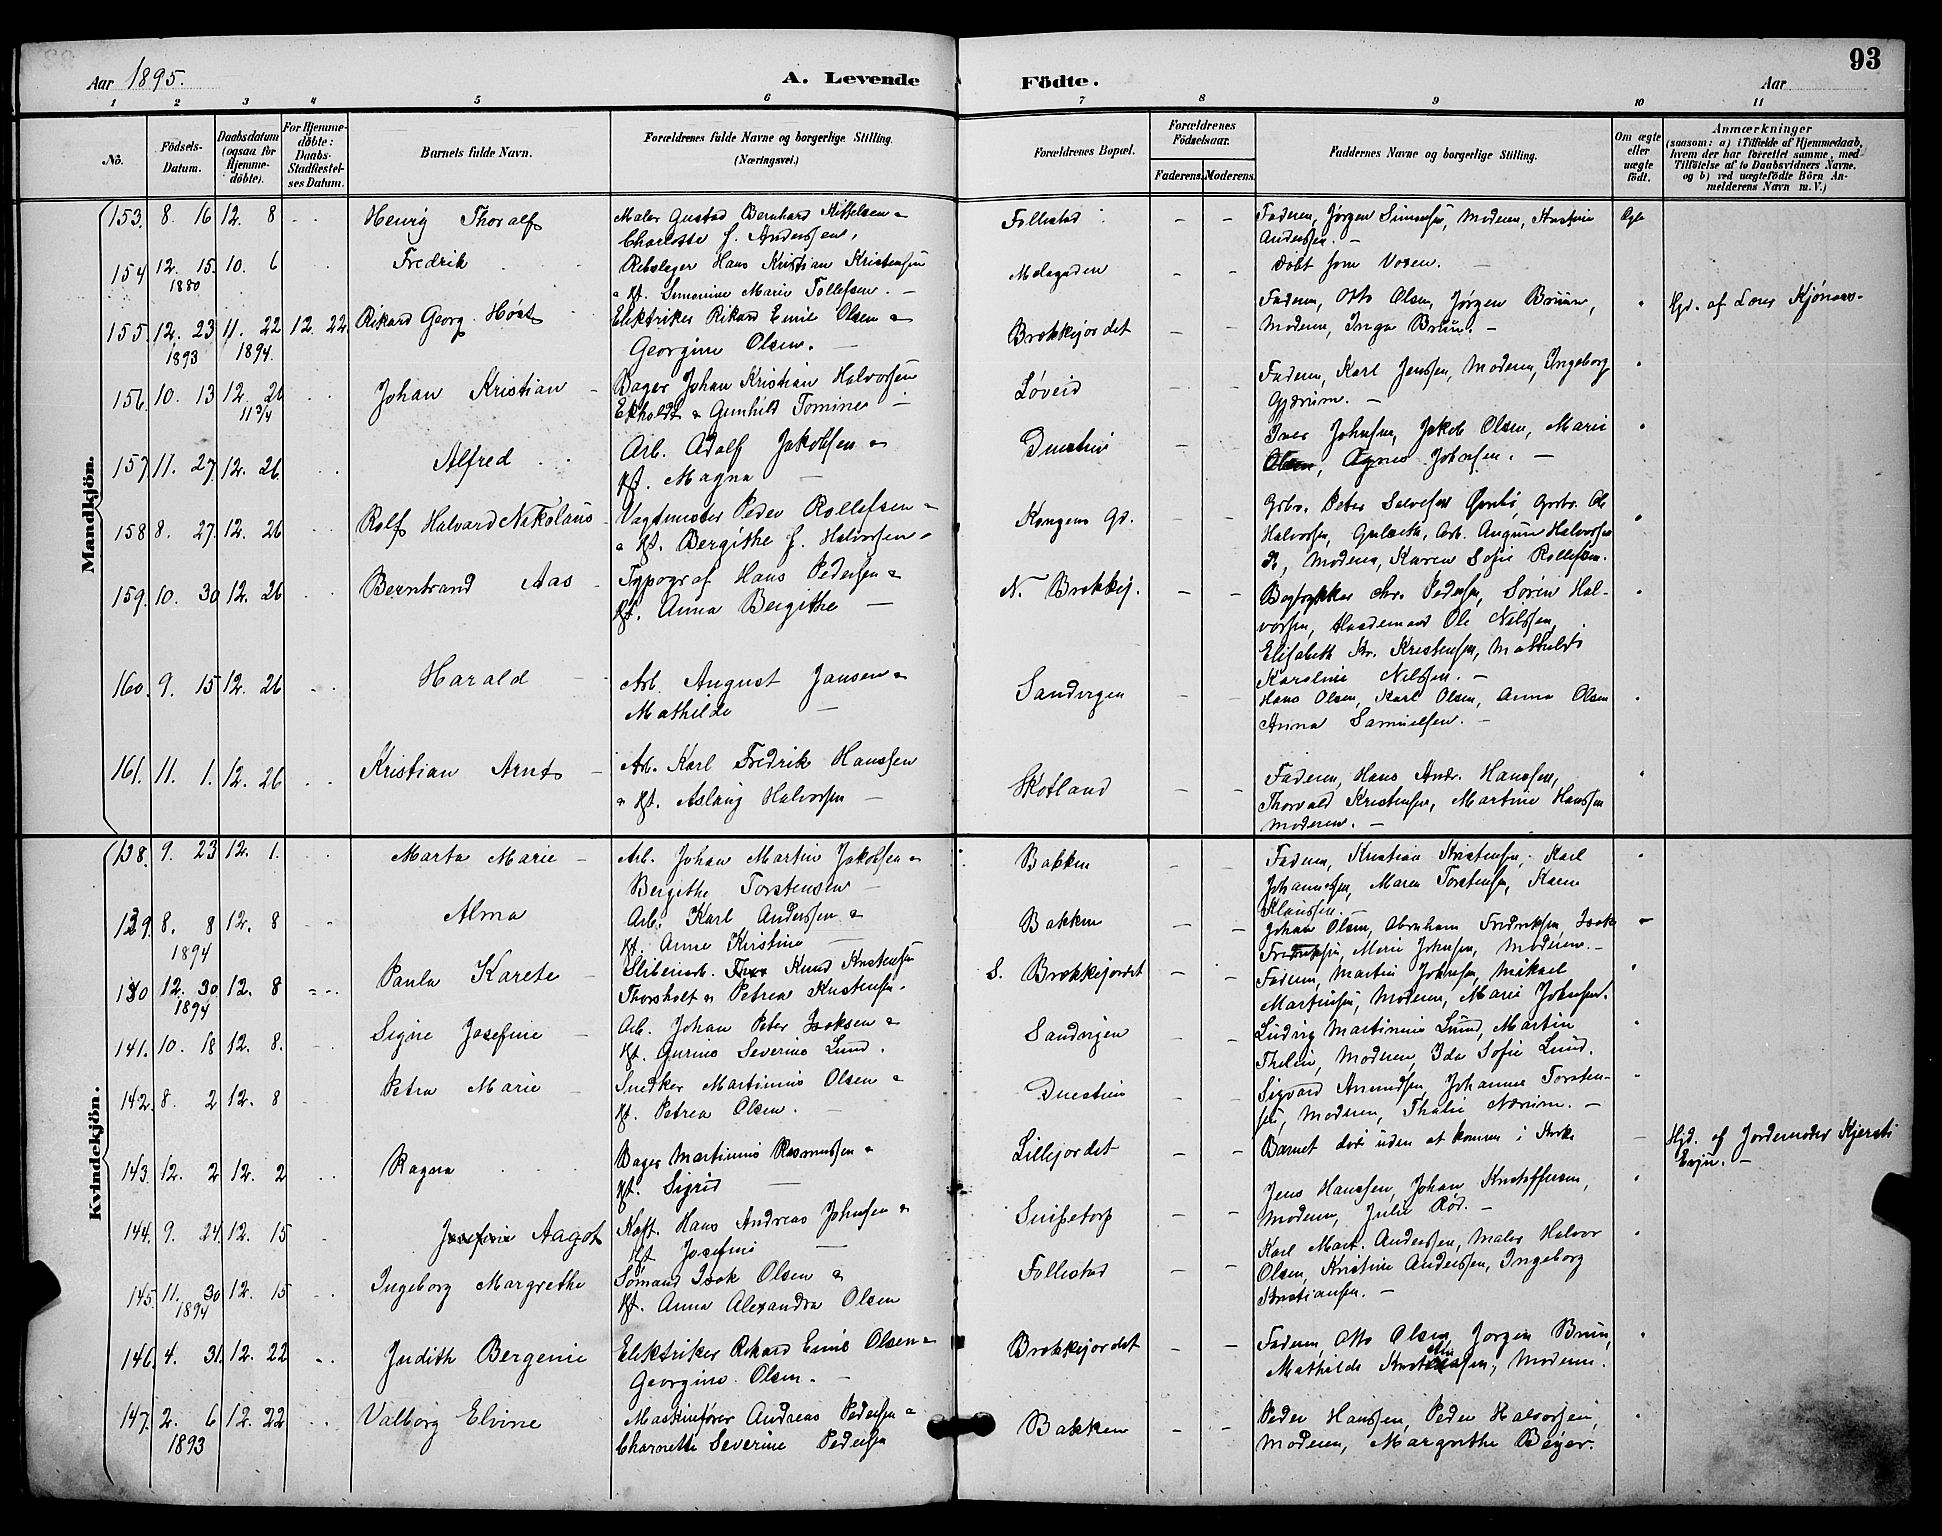 93
Aar 1895.
A. Levende Födte.
Aar
1 2 3 4 5 6 7 8 9 10 11
No.
Födsels-Datum.
Daabsdatum (ogsaa for Hjemme-döbte).
For Hjemme-döbte: Daabs-Stadfæstel-ses Datum.
Barnets fulde Navn.
Forældrenes fulde Navne og borgerlige Stilling. (Næringsvei.)
Forældrenes Bopæl.
Forældrenes Födselsaar.
Faderens. Moderens.
Faddernes Navne og borgerlige Stilling.
Om ægte eller uægte födt.
Anmærkninger
(saasom: a) i Tilfælde af Hjemmedaab, hvem der har forrettet samme, med Tilföielse af to Daabsvidners Navne. og b) ved uægtefödte Börn An-melderens Navn m. V.)
Mandkjön.
153. 8. 16 12. 8 Henry Thoralf
Maler Gustav Bernhard Kittelsen &
Charlotte f. Anderssen,
Follestad
Faderen, Jørgen Simensen, Moderen,
Anderssen. —
Ægte
154 12. 15. 10. 6 Fredrik
1880
Rebslager Hans Kristian Kristensen
& Hst. Simonine Marie Tollefsen. —
Melegaden
Døbt som Voxen.
155. 12. 23 11. 22 12. 22 Rikard Georg Høst
1893 1894
Elektriker Rikard Emil Olsen &
Georgine Olsen. —
Brekkejordet
Faderen, Otto Olsen, Jørgen Bruun,
Moderen, Inga Bruu. —
Hjd. af Lars
156. 10. 13 12. 26 Johan Kristian
11 3/4
Bager Johan Kristian Halvorsen
Ekholdt & Gunhild Tomine —
Løveid
Faderen, Karl Jenssen, Moderen, Ingeborg
Gjærum. —
157 11. 27 12. 26 Alfred
Arb. Adolf Jakobsen &
Hst. Magna —
Iver Johnsen, Jakob Olsen, Marie
Olsen, Agnes Johnsen. —
158 8. 27. 12. 26 Rolf Halvard Nikolaus
Vagtmester Peder Rollefsen
& Hst. Bergithe f. Halvorsen
Kongens Gd.
Halvorsen, Gulseth, Arb. August Halvorsen
Moderen, Karen Sofie Rollefsen.
159. 10. 30 12. 26 Berntrand Aas
Typograf Hans Pedersen &
Hst. Anna Bergithe —
N. Brekkej.
Bogtrykker Chr. Pedersen, Sören Hal-
vorsen, Ole Nilssen,
Elisabeth Kr. Kristensen, Mathilde
Karoline Nilssen. —
160. 9. 15 12. 26 Harald
Arb. August Jansen &
Mathilde —
Sandvigen
Hans Olsen, Karl Olsen, Anna Olsen
Anna Samuelsen. —
161. 11. 1. 12. 26 Kristian Arnt
Arb. Karl Fredrik Hanssen
& Hst. Aslaug Halvorsen —
Skotland
Faderen, Hans Andr. Hanssen,
Thorvald Kristensen, Martine Hanssen
Moderen. —
Kvindekjön.
138. 9. 23 12. 1. Marta Marie
Arb. Johan Martin Jakobsen &
Bergithe Torstensen —
Bakken
Faderen, Kristian Kristensen, Karl
Johannesen, Maren Torstensen, Karen
Klaussen. —
139. 8. 8 12. 8 Alma
1894
Arb. Karl Anderssen &
Hst. Anne Kirstine —
Bakken
Johan Olsen, Abraham Fredriksen, Isak
Fredriksen, Marie Johnsen, Moderen. —
130 12. 30 12. 8 Paula Karete
1894
Sliberiarb. Knud Kristensen
Thorsholt & Petrea Kristensen.
S. Brekkejordet
Faderen, Martin Johnsen, Mikael
Martinsen, Moderen, Marie Johnsen.
141. 10. 18 12. 8. Signe Josefine
Arb. Johan Peter Isaksen &
Hst. Gurine Severine Lund.
Sandvigen
Ludvig Martinius Lund, Martin
Thelin, Moderen, Ida Sofie Lund.
142. 8. 2 12. 8 Petra Marie
Snedker Martinius Olsen &
Hst. Petrea Olsen.
Sigvard Amundsen, Johannes Torsten-
sen, Moderen, Thalie Nærum. —
143. 12. 2 12. 2 Ragna
Bager Martinius Rasmussen &
Hst. Sigrid —
Lillejordet
Barnet døde uden at komme i Kirke
Hjd. af Jordemoder Kjersti
Evju. —
144. 9. 24. 12. 15 Josefine Aagot
Kaft. Hans Andreas Johnsen &
Hst. Josefine —
Snipetorp
Jens Hanssen, Johan Kristoffersen,
Moderen, Julie Rød. —
145. 11. 30 12. 15 Ingeborg Margrethe
1894
Sömand Isak Olsen &
Hst. Anna Alexandra Olsen
Follestad
Karl Mart. Anderssen, Maler Halvor
Olsen, Kristine Anderssen, Ingeborg
Kristiansen. —
146. 4. 31. 12. 22 Judith Bergenie
Elektriker Rikard Emil Olsen &
Georgine Olsen. —
Brekkejordet
Faderen, Otto Olsen, Jørgen Bruu,
Mathilde, Moderen.
147. 2. 6 12. 22 Valborg Elvine
1893
Maskinfører Andreas Pedersen &
Charnette Severine Pedersen
Bakken
Peder Hanssen, Peder Halvorsen,
Moderen, Margrethe Beyer.